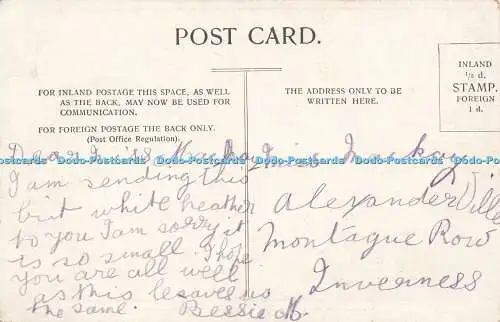 POST CARD.
INLAND
½ d.
STAMP.
FOREIGN
1 d.
FOR INLAND POSTAGE THIS SPACE, AS WELL
AS THE BACK, MAY NOW BE USED FOR
COMMUNICATION.
FOR FOREIGN POSTAGE THE BACK ONLY.
(Post Office Regulation).
THE ADDRESS ONLY TO BE
WRITTEN HERE.
Dear Miss Mackay
I am sending this
bit white heather
to you I am sorry it
is so small I hope
you are all well
as this leaves us
the same. Bessie M.
Miss Mackay
Alexander Ville
Montague Row
Inverness
Postcards Postcards Postcards Postcards Postcards Postcards Postcards Postcards Postcards